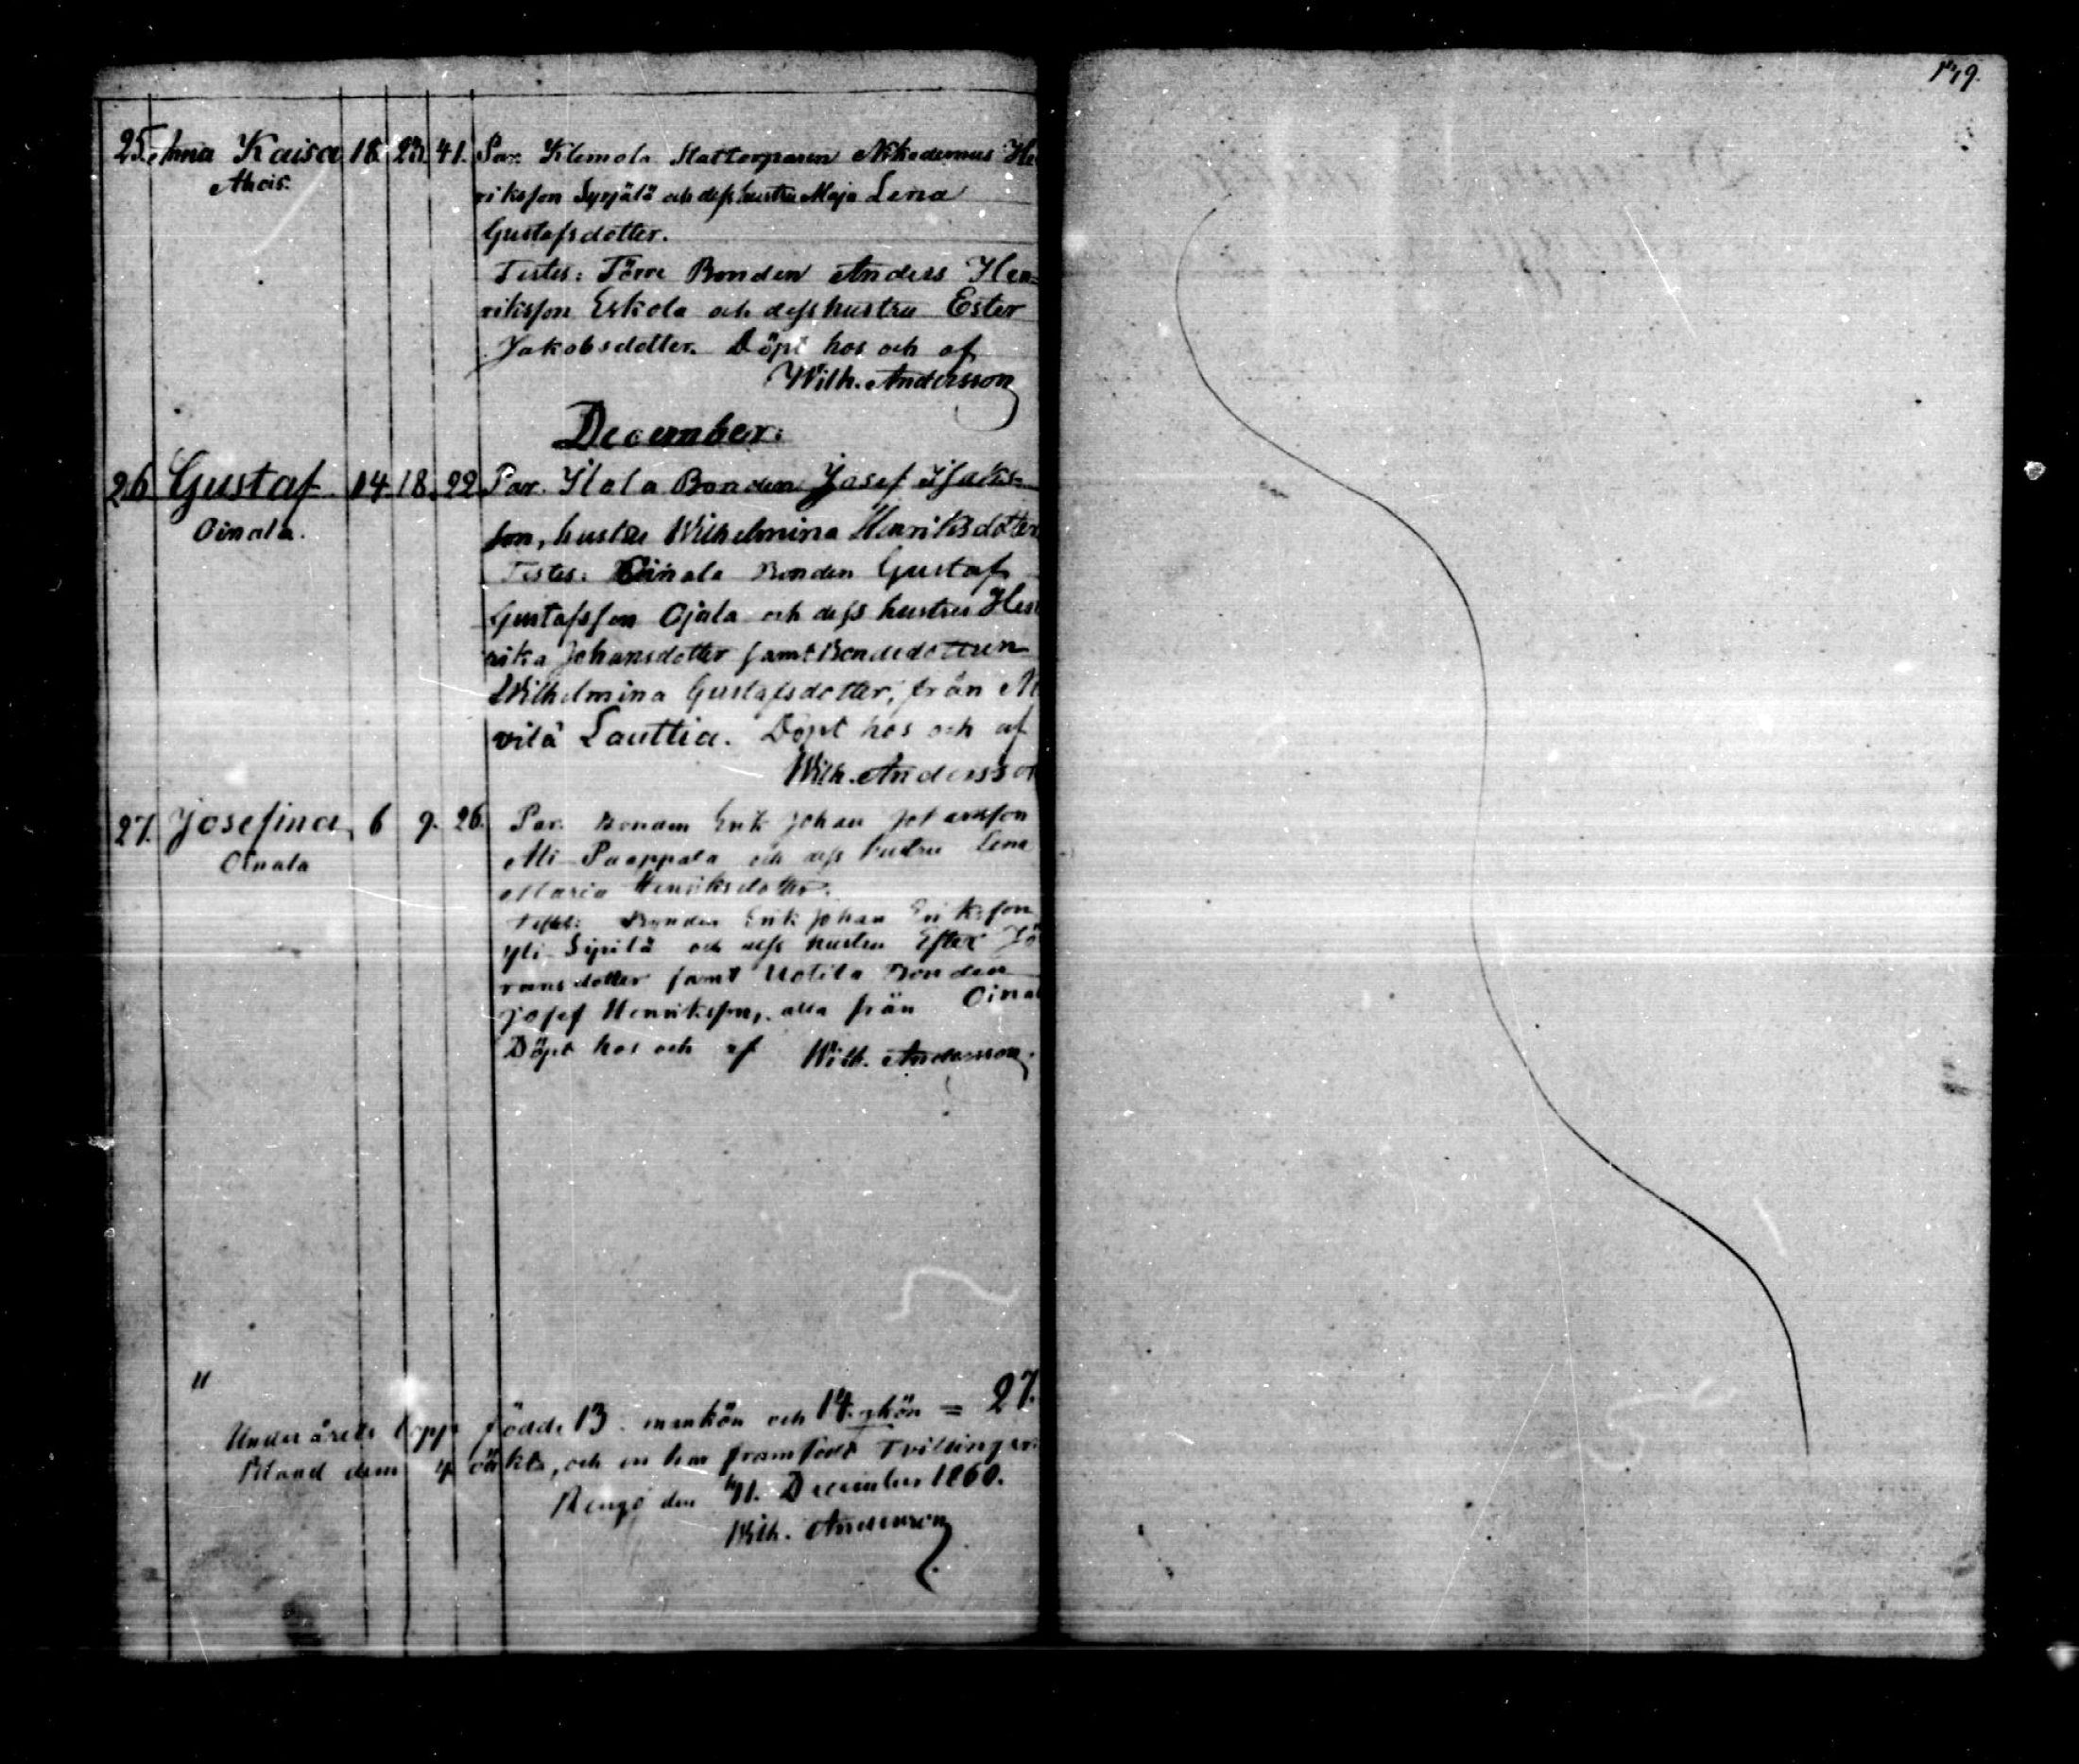 149.
25. Anna Kaisa 18. 23. 41. Par. Klemola Stattorparen Nikodemus He
Ahois. riksson Syrjälä och dess hustru Maja Lena
Gustafsdotter.
Testes: Törre Bonden Anders Hen=
riksson Eskola och dess hustru Ester
Jakobsdotter. Döpt hos och af
Wilh. Andersson
December.
26 Gustaf 14. 18. 22. Par. Ilola Bonden Josef Isaks=
Oinala. son, hustru Wilhelmina Henriksdotter
Testes: Oinala Bonden Gustaf
Gustafsson Ojala och dess hustru Hen
rika Johansdotter samt Bondedottren
Wilhelmina Gustafsdotter, från
vilä Lauttia. Döpt hos och af
Wilh. Andersson
27. Josefina 6 9. 26. Par. Bonden Erik Johan Johansson
Oinala Ali-Paappala och dess hustru Lena
Maria Henriksdotter.
Testes: Bonden Erik Johan Eriksson
Yli-Sipilä och dess hustru Ester Jö
ransdotter samt Uotila Bonden
Josef Henriksson, alla från Oinal
Döpt hos och af Wilh. Andersson.
"
Under årets lopp födde 13. mankön och 14. qkön = 27.
Bland dem 4 oäkta, och en har framfödt Tvillingar.
Rengo den 31. December 1860.
Wilh. Andersson